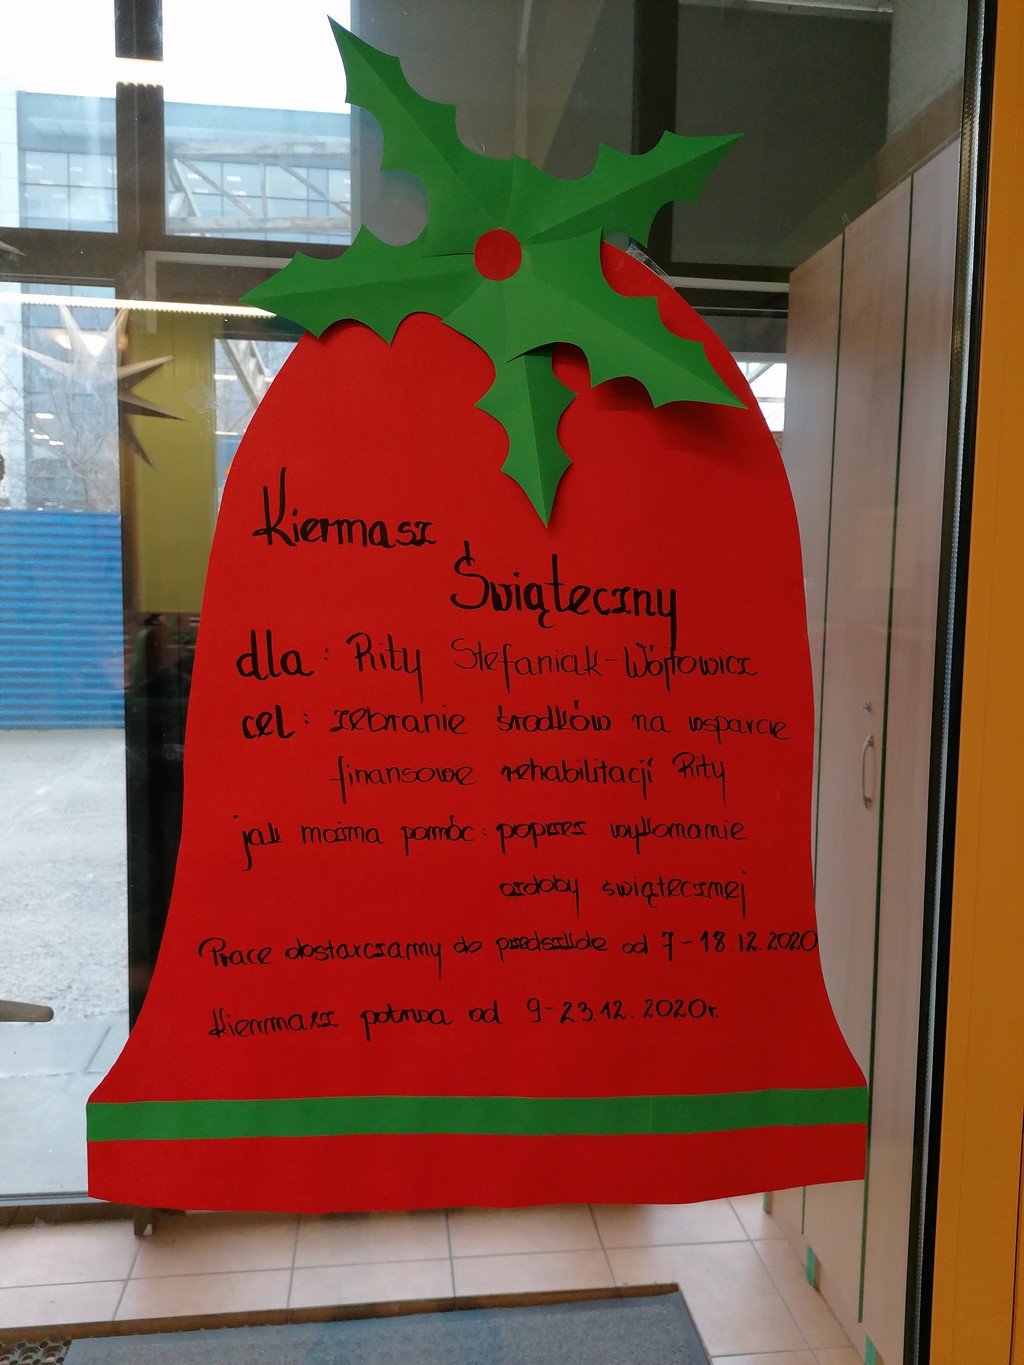 Kiermasz
Świąteczny
dla: Rity Stefaniak-Wójtowicz
cel: zebranie środków na wsparcie
finansowe rehabilitacji Rity
jak można pomóc: poprzez wykonanie
ozdoby świątecznej
Prace dostarczamy do przedszkole od 7-18.12.2020
Kiermasz potrwa od 9-23.12.2020r.